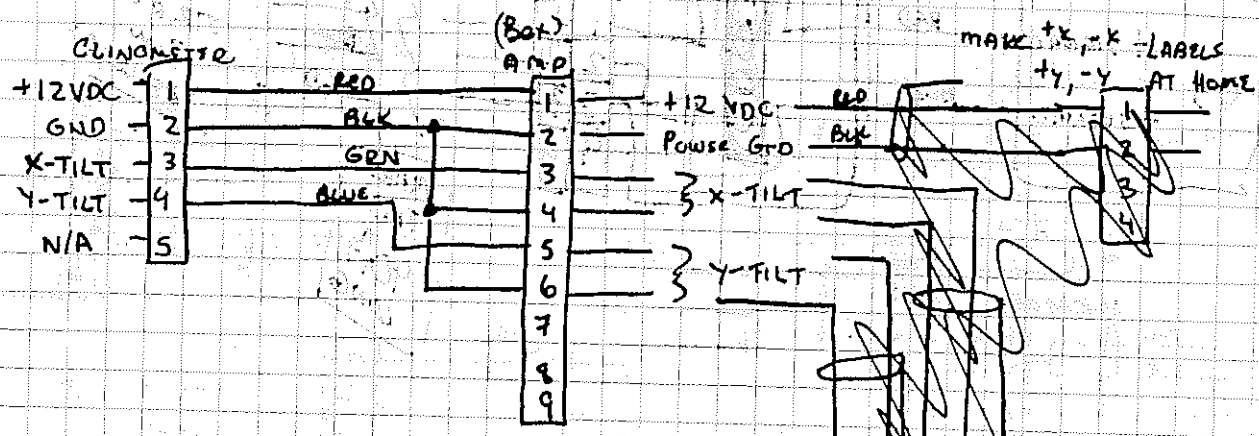 CLINOMETER
+12VDC
GND
X-TILT
Y-TILT
N/A
1
2
3
4
5
RED
BLK
GRN
BLUE
(BOX)
AMP
1
2
3
4
5
6
7
8
9
+12 VDC
POWER GTD
} X-TILT
} Y-TILT
RED
BLK
MAKE +X, -X LABELS
+Y, -Y AT HOME
1
2
3
4